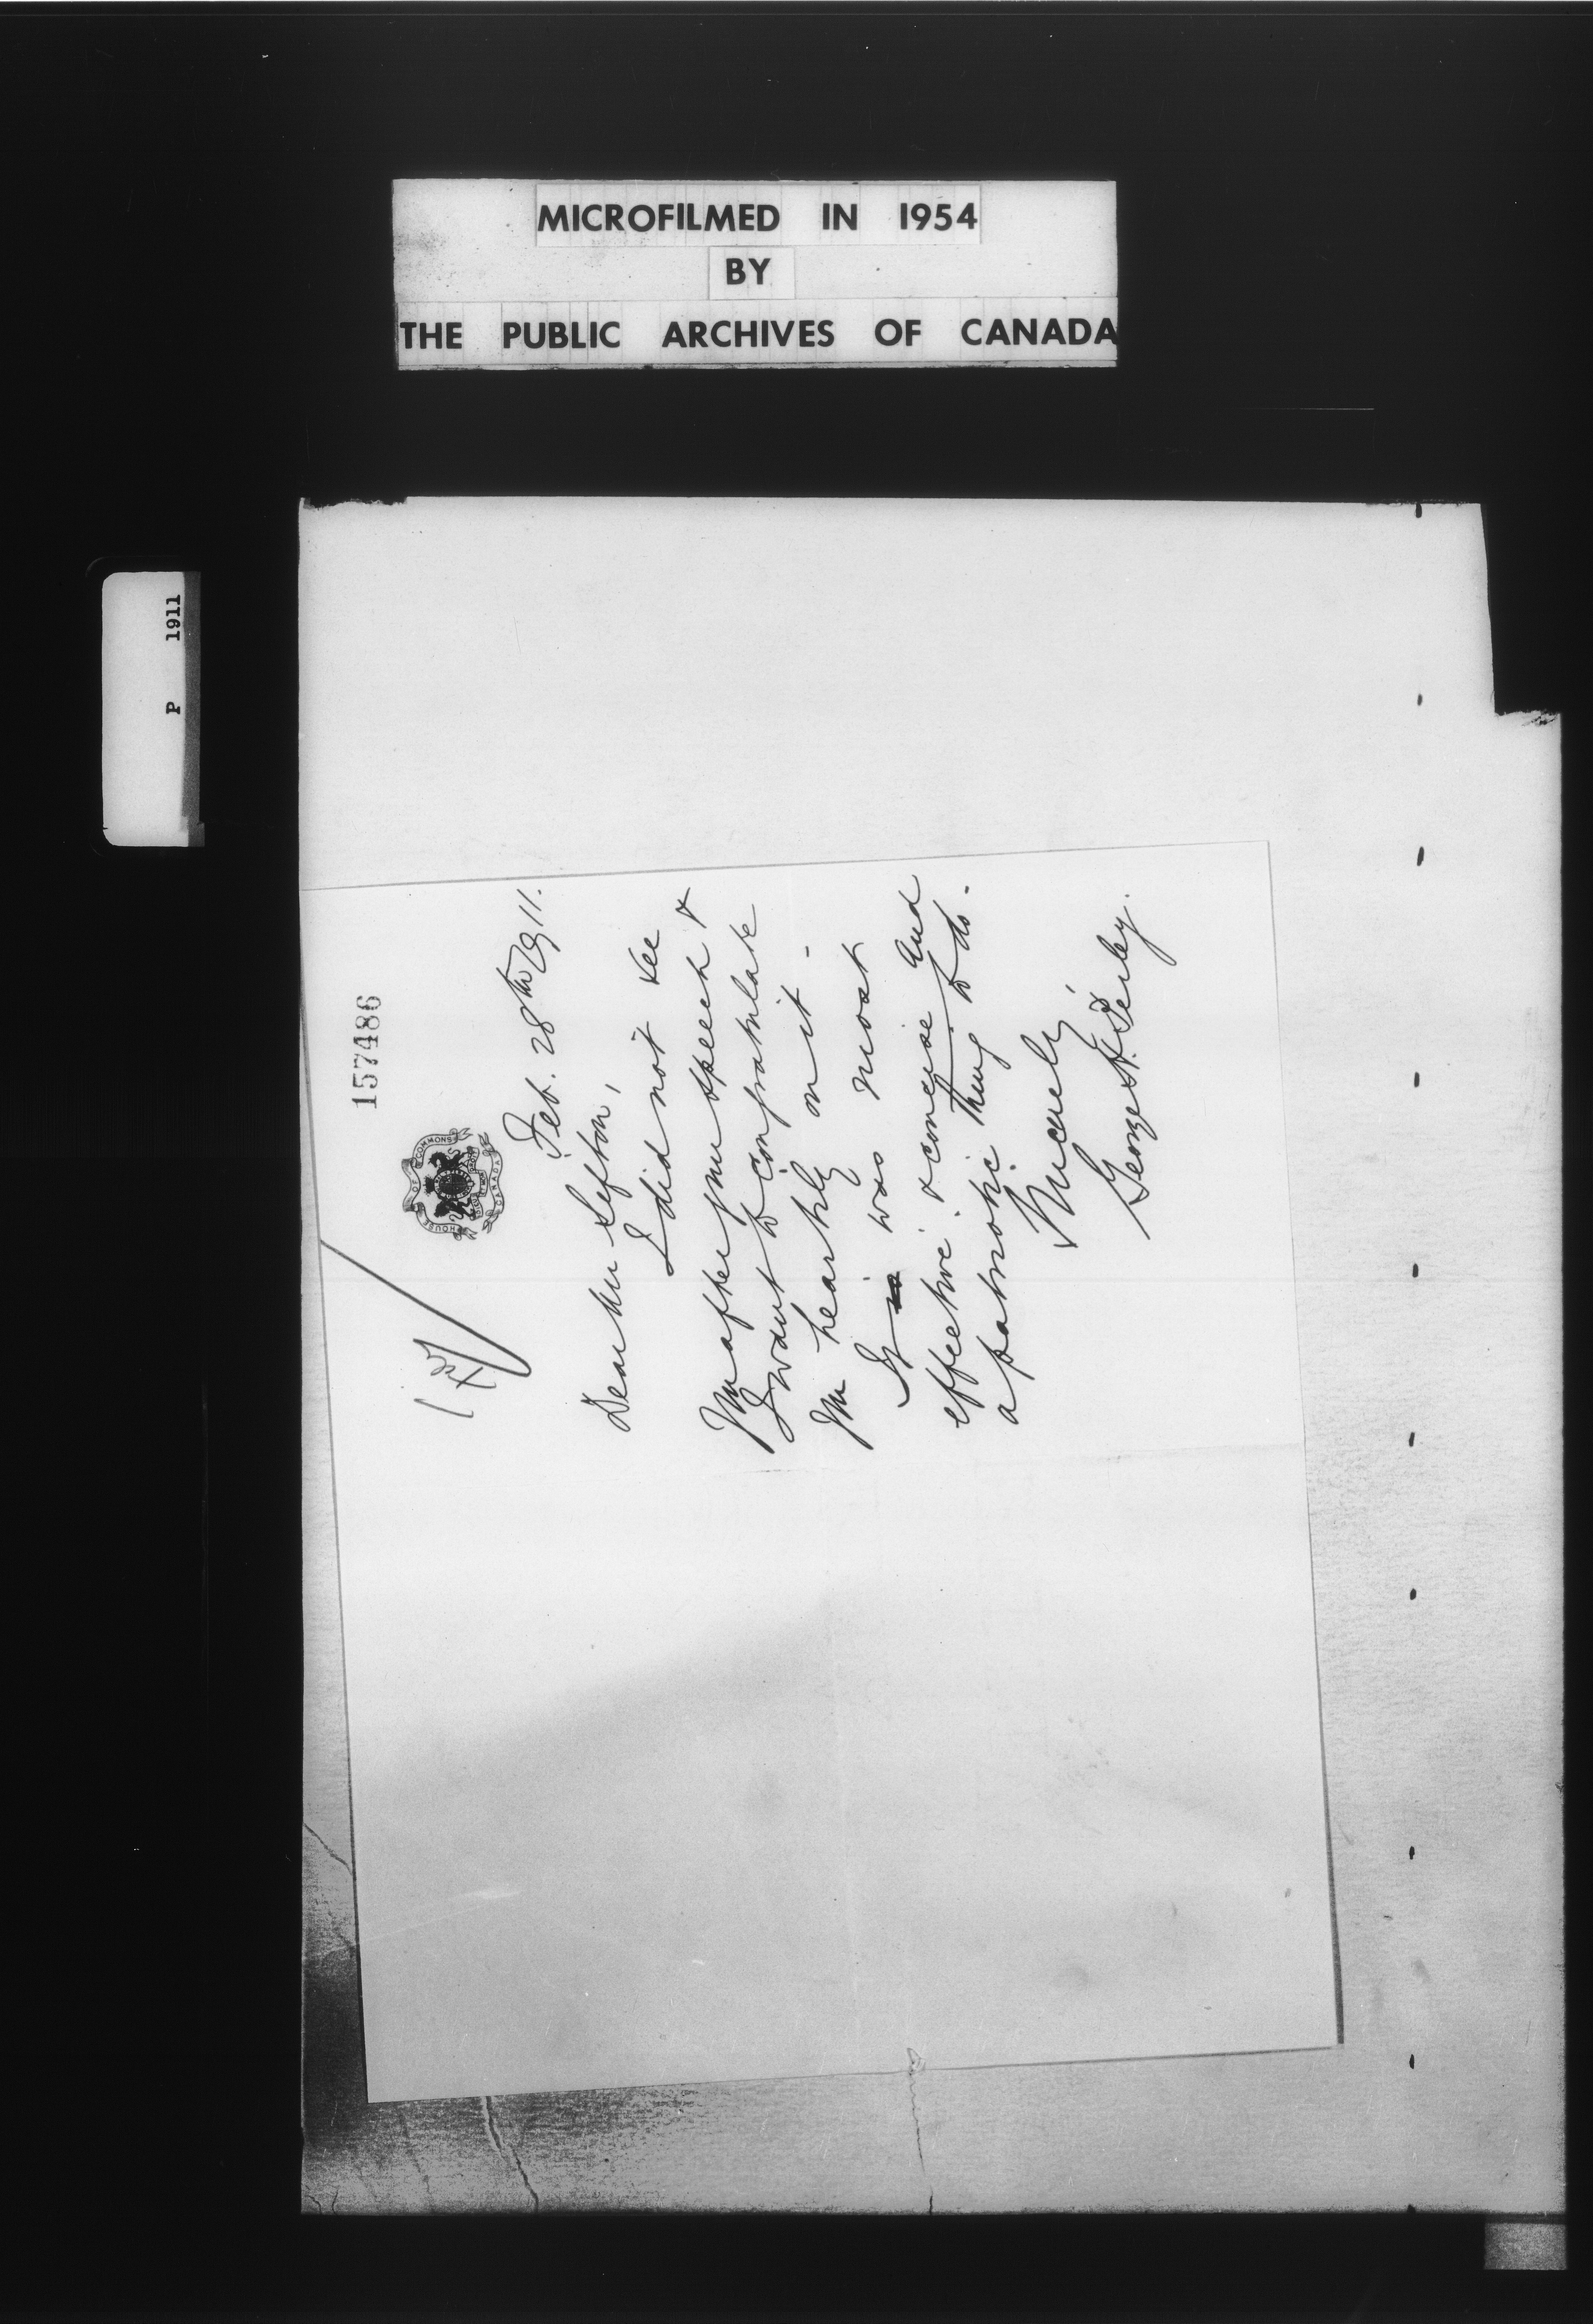 MICROFILMED IN 1954
BY
THE PUBLIC ARCHIVES OF CANADA
P 1911
157486
HOUSE OF COMMONS
CANADA
Feb. 28th 1911.
Dear Mr Sifton,
I did not see
you after your speech &
I want to congratulate
you heartily on it -
It is was most
effective & concise and
a patriotic thing to do -
Sincerely
George H. Perley.